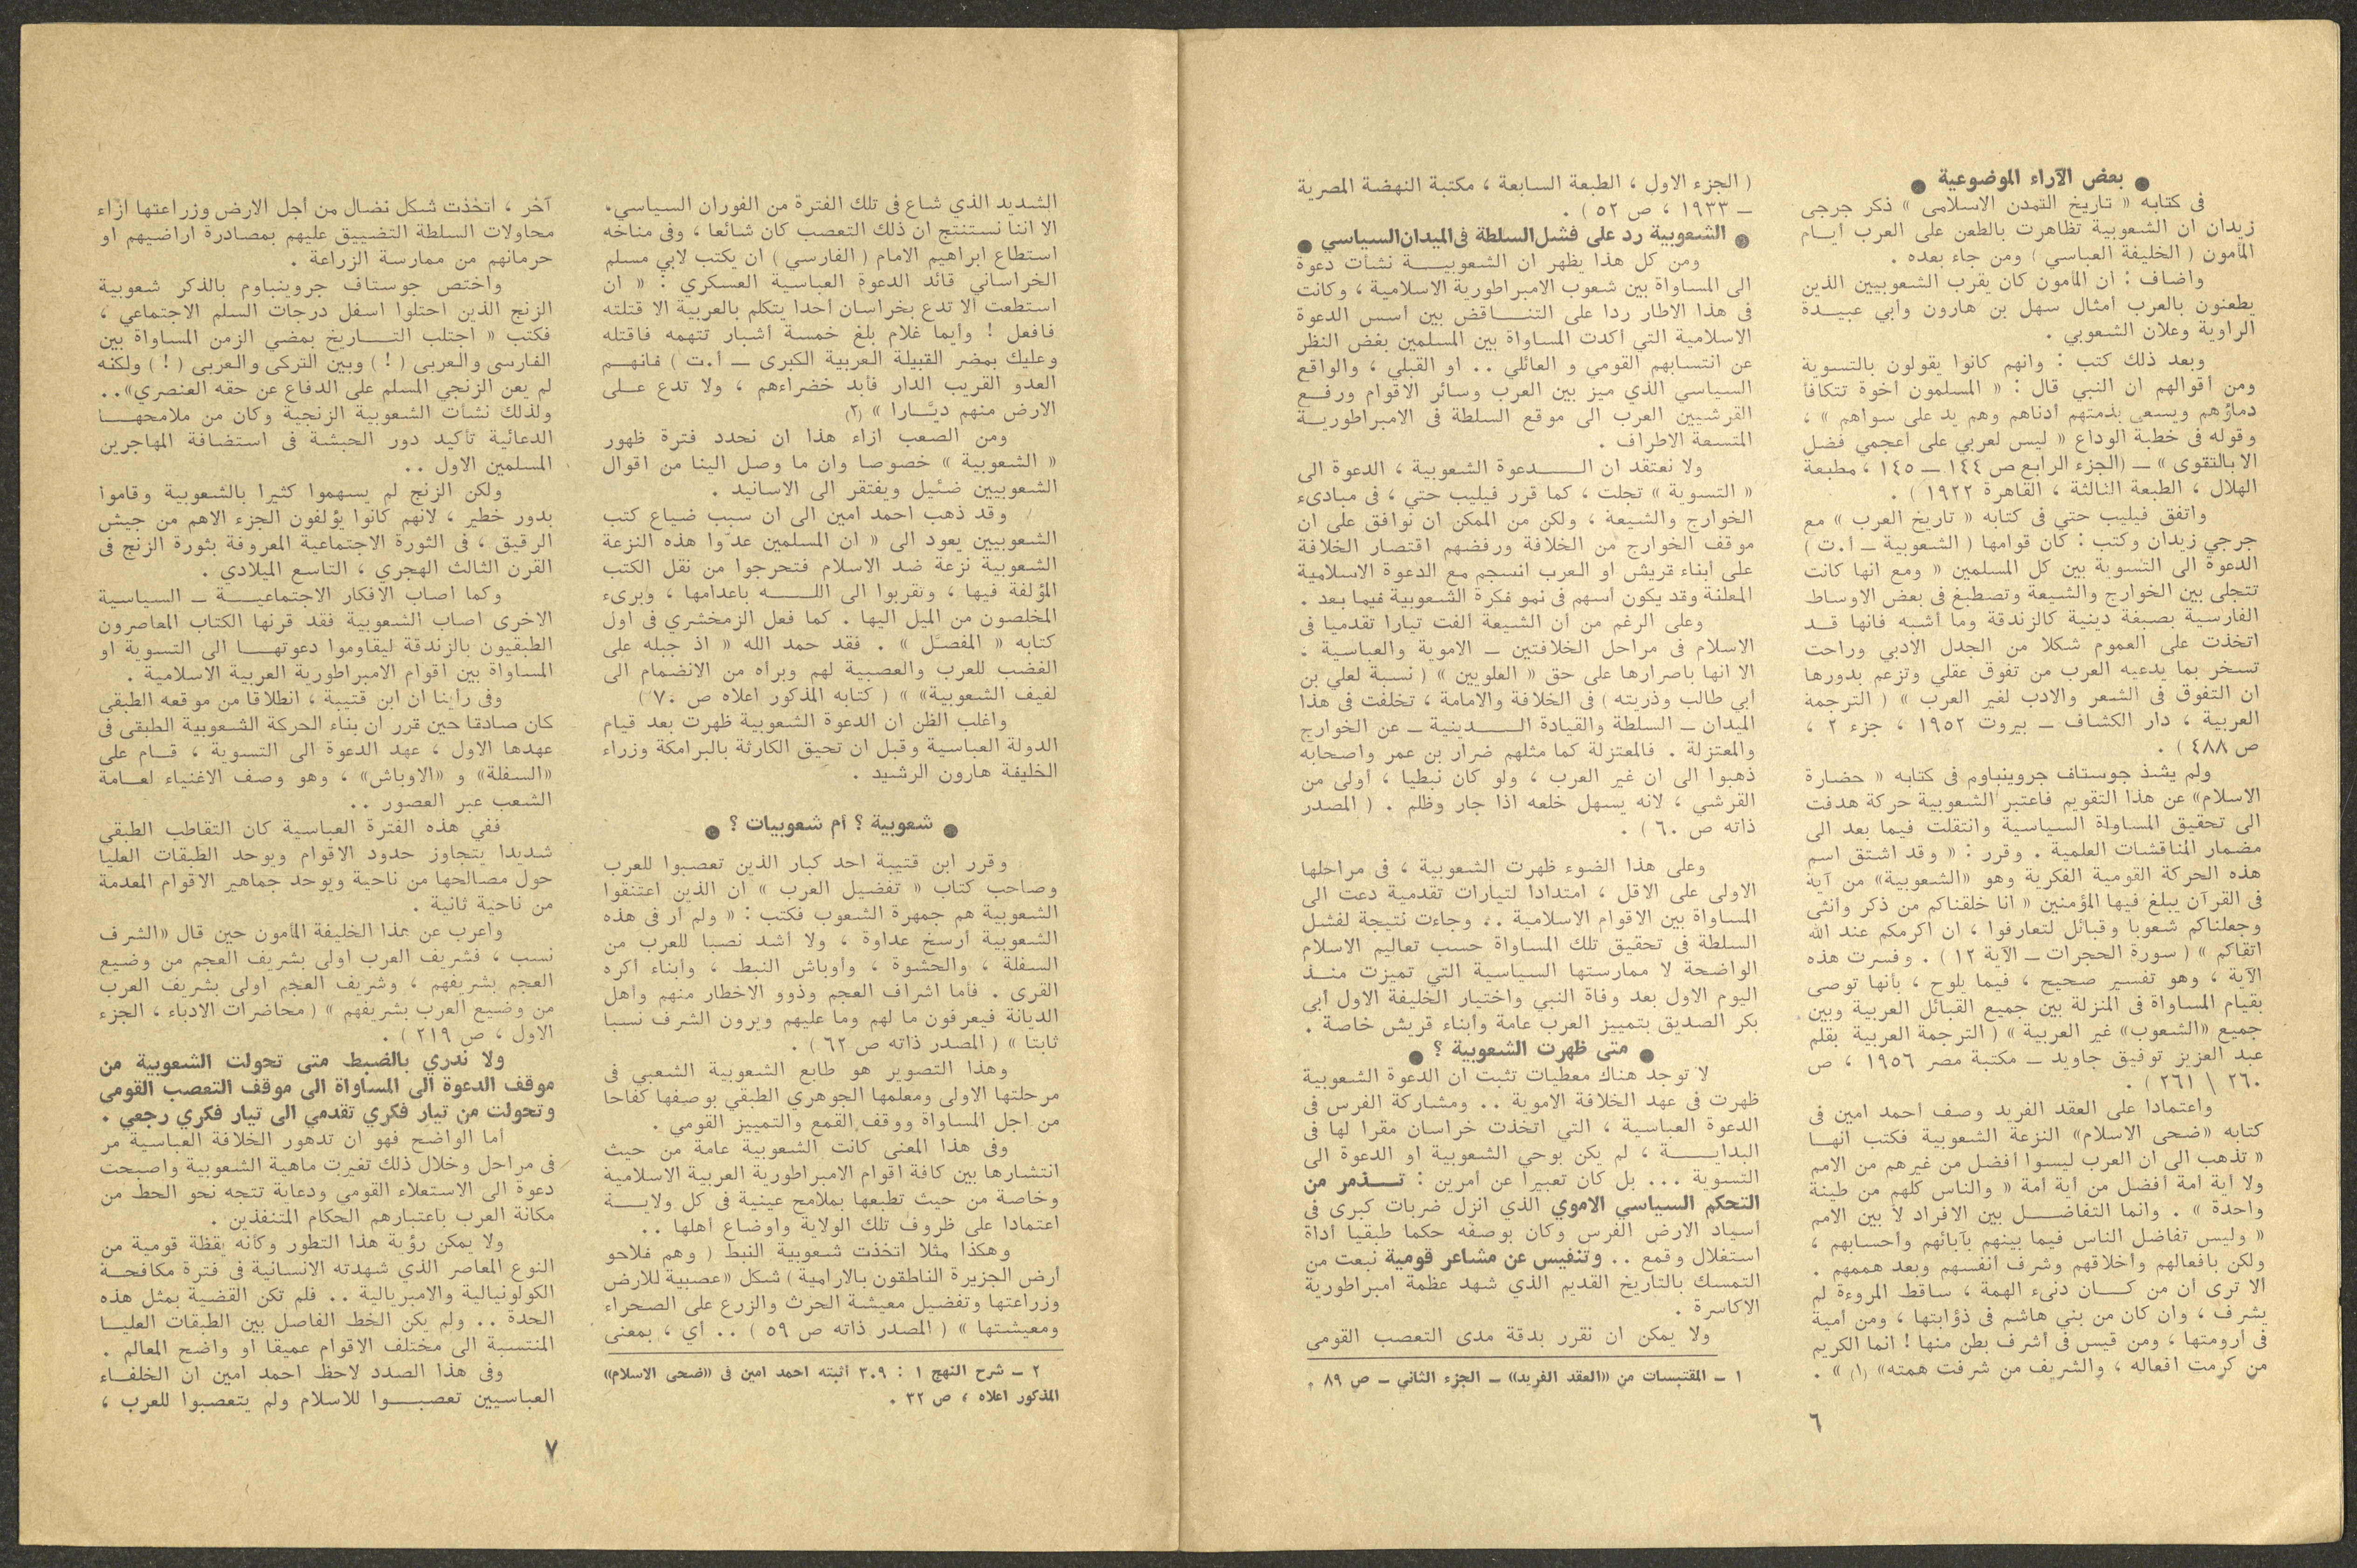 ● بعض الآراء الموضوعية ●
فى كتابه « تاريخ التمدن الاسلامى » ذكر جرجى
زيدان ان الشعوبية تظاهرت بالطعن على العرب ايام
المأمون ( الخليفة العباسي ) ومن جاء بعده .
واضاف : ان المأمون كان يقرب الشعوبيين الذين
يطعنون بالعرب امثال سهل بن هارون وابي عبيدة
الراوية وعلان الشعوبي .
وبعد ذلك كتب : وانهم كانوا يقولون بالتسوية
ومن اقوالهم ان النبي قال : « المسلمون اخوة تتكافأ
دماؤهم ويسعى بذمتهم أدناهم وهم يد على سواهم » ،
وقوله فى خطبة الوداع « ليس لعربي على اعجمي فضل
الا بالتقوى » – (الجزء الرابع ص ١٤٤ – ١٤٥ ، مطبعة
الهلال ، الطبعة الثالثة ، القاهرة ١٩٢٢ ) .
واتفق فيليب حتي فى كتابه « تاريخ العرب » مع
جرجي زيدان وكتب : كان قوامها ( الشعوبية – أ.ت )
الدعوة الى التسوية بين كل المسلمين « ومع انها كانت
تتجلى بين الخوارج والشيعة وتصطبغ فى بعض الاوساط
الفارسية بصبغة دينية كالزندقة وما أشبه فانها قد
اتخذت على العموم شكلا من الجدل الادبي وراحت
تسخر بما يدعيه العرب من تفوق عقلي وتزعم بدورها
ان التفوق فى الشعر والادب لغير العرب » ( الترجمة
العربية ، دار الكشاف – بيروت ١٩٥٢ ، جزء ٢ ،
ص ٤٨٨ ) .
ولم يشذ جوستاف جروينباوم فى كتابه « حضارة
الاسلام» عن هذا التقويم فاعتبر الشعوبية حركة هدفت
الى تحقيق المساواة السياسية وانتقلت فيما بعد الى
مضمار المناقشات العلمية . وقرر : « وقد اشتق اسم
هذه الحركة القومية الفكرية وهو «الشعوبية» من آية
فى القرآن يبلغ فيها المؤمنين « انا خلقناكم من ذكر وانثى
وجعلناكم شعوبا وقبائل لتعارفوا ، ان اكرمكم عند الله
اتقاكم » ( سورة الحجرات – الآية ١٢ ) . وفسرت هذه
الآية ، وهو تفسير صحيح ، فيما يلوح ، بأنها توصى
بقيام المساواة فى المنزلة بين جميع القبائل العربية وبين
جميع «الشعوب» غير العربية » ( الترجمة العربية بقلم
عبد العزيز توفيق جاويد – مكتبة مصر ١٩٥٦ ، ص
٢٦٠ \ ٢٦١ ) .
واعتمادا على العقد الفريد وصف أحمد امين فى
كتابه «ضحى الاسلام» النزعة الشعوبية فكتب انها
« تذهب الى ان العرب ليسوا افضل من غيرهم من الامم
ولا اية امة افضل من اية امة « والناس كلهم من طينة
واحدة » . وانما التفاضل بين الافراد لا بين الامم
« وليس تفاضل الناس فيما بينهم بآبائهم وأحسابهم ،
ولكن بأفعالهم وأخلاقهم وشرف أنفسهم وبعد هممهم .
الا ترى ان من كان دنىء الهمة ، ساقط المروءة لم
يشرف ، وان كان من بني هاشم فى ذؤابتها ، ومن أمية
فى أرومتها ، ومن قيس فى أشرف بطن منها ! انما الكريم
من كرمت افعاله ، والشريف من شرفت همته» (١) » .
٦
( الجزء الاول ، الطبعة السابعة ، مكتبة النهضة المصرية
– ١٩٣٣ ، ص ٥٢ ) .
● الشعوبية رد على فشل السلطة فى الميدان السياسي ●
ومن كل هذا يظهر ان الشعوبية نشأت دعوة
الى المساواة بين شعوب الامبراطورية الاسلامية ، وكانت
فى هذا الاطار ردا على التناقض بين أسس الدعوة
الاسلامية التي أكدت المساواة بين المسلمين بغض النظر
عن انتسابهم القومي و العائلي .. او القبلي ، والواقع
السياسي الذي ميز بين العرب وسائر الاقوام ورفع
القرشيين العرب الى موقع السلطة فى الامبراطورية
المتسعة الاطراف .
ولا نعتقد ان الدعوة الشعوبية ، الدعوة الى
« التسوية » تجلت ، كما قرر فيليب حتي ، فى مبادىء
الخوارج والشيعة ، ولكن من الممكن ان نوافق على ان
موقف الخوارج من الخلافة ورفضهم اقتصار الخلافة
على أبناء قريش او العرب انسجم مع الدعوة الاسلامية
المعلنة وقد يكون أسهم فى نمو فكرة الشعوبية فيما بعد .
وعلى الرغم من ان الشيعة ألفت تيارا تقدميا فى
الاسلام فى مراحل الخلافتين – الاموية والعباسية ،
الا انها باصرارها على حق « العلويين » ( نسبة لعلي بن
أبي طالب وذريته ) فى الخلافة والامامة ، تخلفت فى هذا
الميدان – السلطة والقيادة الدينية – عن الخوارج
والمعتزلة . فالمعتزلة كما مثلهم ضرار بن عمر واصحابه
ذهبوا الى ان غير العرب ، ولو كان نبطيا ، أولى من
القرشي ، لانه يسهل خلعه اذا جار وظلم . ( المصدر
ذاته ص ٦٠ ) .
وعلى هذا الضوء ظهرت الشعوبية ، فى مراحلها
الاولى على الاقل ، امتدادا لتيارات تقدمية دعت الى
المساواة بين الاقوام الاسلامية .. وجاءت نتيجة لفشل
السلطة فى تحقيق تلك المساواة حسب تعاليم الاسلام
الواضحة لا ممارستها السياسية التي تميزت منذ
اليوم الاول بعد وفاة النبي واختيار الخليفة الاول أبي
بكر الصديق بتمييز العرب عامة وأبناء قريش خاصة .
● متى ظهرت الشعوبية ؟ ●
لا توجد هناك معطيات تثبت ان الدعوة الشعوبية
ظهرت فى عهد الخلافة الاموية .. ومشاركة الفرس فى
الدعوة العباسية ، التي اتخذت خراسان مقرا لها فى
البداية ، لم يكن بوحي الشعوبية او الدعوة الى
التسوية ... بل كان تعبيرا عن أمرين : تذمر من
التحكم السياسي الاموي الذي انزل ضربات كبرى فى
أسياد الارض الفرس وكان بوصفه حكما طبقيا أداة
استغلال وقمع .. وتنفيس عن مشاعر قومية نبعت من
التمسك بالتاريخ القديم الذي شهد عظمة امبراطورية
الاكاسرة .
ولا يمكن ان نقرر بدقة مدى التعصب القومي
١ – المقتبسات من «العقد الفريد» – الجزء الثاني – ص ٨٩ .
الشديد الذي شاع فى تلك الفترة من الفوران السياسي.
الا اننا نستنتج ان ذلك التعصب كان شائعا ، وفى مناخه
استطاع ابراهيم الامام ( الفارسي ) ان يكتب لابي مسلم
الخراساني قائد الدعوة العباسية العسكري : « ان
استطعت الا تدع بخراسان أحدا يتكلم بالعربية الا قتلته
فافعل ! وأيما غلام بلغ خمسة أشبار تتهمه فاقتله
وعليك بمضر القبيلة العربية الكبرى – أ.ت ) فانهم
العدو القريب الدار فأبد خضراءهم ، ولا تدع على
الارض منهم ديّارا » (٢)
ومن الصعب ازاء هذا ان نحدد فترة ظهور
« الشعوبية » خصوصا وان ما وصل الينا من اقوال
الشعوبيين ضئيل ويفتقر الى الاسانيد .
وقد ذهب احمد امين الى ان سبب ضياع كتب
الشعوبيين يعود الى « ان المسلمين عدّوا هذه النزعة
الشعوبية نزعة ضد الاسلام فتحرجوا من نقل الكتب
المؤلفة فيها ، وتقربوا الى الله باعدامها ، وبرىء
المخلصون من الميل اليها . كما فعل الزمخشري فى اول
كتابه « المفصّل » . فقد حمد الله « اذ جبله على
الغضب للعرب والعصبية لهم وبرأه من الانضمام الى
لفيف الشعوبية» » ( كتابه المذكور اعلاه ص ٧٠ )
واغلب الظن ان الدعوة الشعوبية ظهرت بعد قيام
الدولة العباسية وقبل ان تحيق الكارثة بالبرامكة وزراء
الخليفة هارون الرشيد .
● شعوبية ؟ أم شعوبيات ؟ ●
وقرر ابن قتيبة احد كبار الذين تعصبوا للعرب
وصاحب كتاب « تفضيل العرب » ان الذين اعتنقوا
الشعوبية هم جمهرة الشعوب فكتب : « ولم أر فى هذه
الشعوبية أرسخ عداوة ، ولا أشد نصبا للعرب من
السفلة ، والحشوة ، وأوباش النبط ، وأبناء أكره
القرى . فأما اشراف العجم وذوو الاخطار منهم واهل
الديانة فيعرفون ما لهم وما عليهم ويرون الشرف نسبا
ثابتا » ( المصدر ذاته ص ٦٢ ) .
وهذا التصوير هو طابع الشعوبية الشعبي فى
مرحلتها الاولى ومعلمها الجوهري الطبقي بوصفها كفاحا
من اجل المساواة ووقف القمع والتمييز القومي .
وفى هذا المعنى كانت الشعوبية عامة من حيث
انتشارها بين كافة اقوام الامبراطورية العربية الاسلامية
وخاصة من حيث تطبعها بملامح عينية فى كل ولاية
اعتمادا على ظروف تلك الولاية واوضاع أهلها ..
وهكذا مثلا اتخذت شعوبية النبط ( وهم فلاحو
أرض الجزيرة الناطقون بالارامية ) شكل «عصبية للارض
وزراعتها وتفضيل معيشة الحرث والزرع على الصحراء
ومعيشتها » ( المصدر ذاته ص ٥٩ ) .. أي ، بمعنى
٢ – شرح النهج ١ : ٣٠٩ أثبته احمد امين فى «ضحى الاسلام»
المذكور اعلاه ، ص ٣٢ .
آخر ، اتخذت شكل نضال من أجل الارض وزراعتها ازاء
محاولات السلطة التضييق عليهم بمصادرة اراضيهم او
حرمانهم من ممارسة الزراعة .
واختص جوستاف جروينباوم بالذكر شعوبية
الزنج الذين احتلوا اسفل درجات السلم الاجتماعي ،
فكتب « اجتلب التاريخ بمضي الزمن المساواة بين
الفارسى والعربى ( ! ) وبين التركى والعربى ( ! ) ولكنه
لم يعن الزنجي المسلم على الدفاع عن حقه العنصري»..
ولذلك نشأت الشعوبية الزنجية وكان من ملامحها
الدعائية تأكيد دور الحبشة فى استضافة المهاجرين
المسلمين الاول ..
ولكن الزنج لم يسهموا كثيرا بالشعوبية وقاموا
بدور خطير ، لانهم كانوا يؤلفون الجزء الاهم من جيش
الرقيق ، فى الثورة الاجتماعية المعروفة بثورة الزنج فى
القرن الثالث الهجري ، التاسع الميلادي .
وكما اصاب الافكار الاجتماعية – السياسية
الاخرى اصاب الشعوبية فقد قرنها الكتاب المعاصرون
الطبقيون بالزندقة ليقاوموا دعوتها الى التسوية او
المساواة بين اقوام الامبراطورية العربية الاسلامية .
وفى رأينا ان ابن قتيبة ، انطلاقا من موقعه الطبقى
كان صادقا حين قرر ان بناء الحركة الشعوبية الطبقى فى
عهدها الاول ، عهد الدعوة الى التسوية ، قام على
«السفلة» و «الاوباش» ، وهو وصف الاغنياء لعامة
الشعب عبر العصور ..
ففي هذه الفترة العباسية كان التقاطب الطبقي
شديدا يتجاوز حدود الاقوام ويوحد الطبقات العليا
حول مصالحها من ناحية ويوحد جماهير الاقوام المعدمة
من ناحية ثانية .
وأعرب عن هذا الخليفة المأمون حين قال «الشرف
نسب ، فشريف العرب اولى بشريف العجم من وضيع
العجم بشريفهم ، وشريف العجم اولى بشريف العرب
من وضيع العرب بشريفهم » ( محاضرات الادباء ، الجزء
الاول ، ص ٢١٩ ) .
ولا ندري بالضبط متى تحولت الشعوبية من
موقف الدعوة الى المساواة الى موقف التعصب القومى
وتحولت من تيار فكري تقدمي الى تيار فكري رجعي .
أما الواضح فهو ان تدهور الخلافة العباسية مر
فى مراحل وخلال ذلك تغيرت ماهية الشعوبية واصبحت
دعوة الى الاستعلاء القومي ودعاية تتجه نحو الحط من
مكانة العرب باعتبارهم الحكام المتنفذين .
ولا يمكن رؤية هذا التطور وكأنه يقظة قومية من
النوع المعاصر الذي شهدته الانسانية فى فترة مكافحة
الكولونيالية والامبريالية .. فلم تكن القضية بمثل هذه
الحدة .. ولم يكن الخط الفاصل بين الطبقات العليا
المنتسبة الى مختلف الاقوام عميقا او واضح المعالم .
وفى هذا الصدد لاحظ احمد امين ان الخلفاء
العباسيين تعصبوا للاسلام ولم يتعصبوا للعرب ،
٧